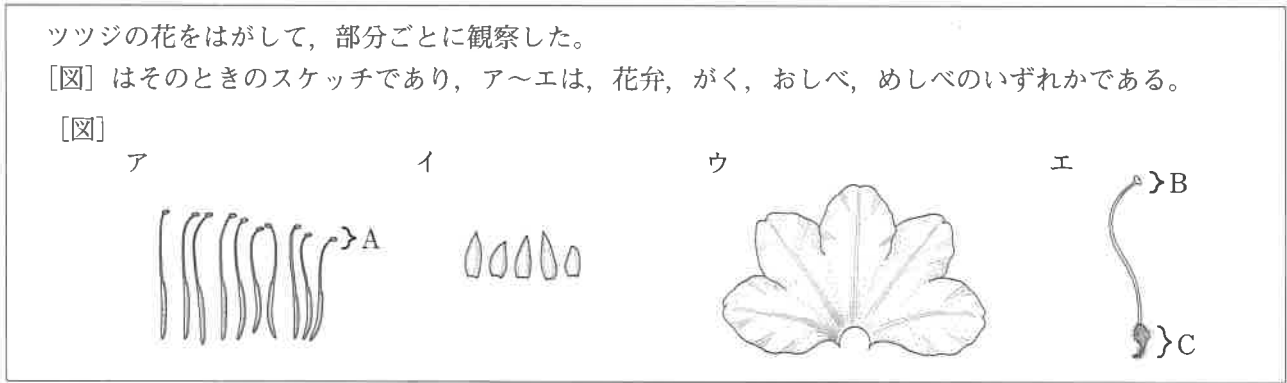 ツツジの花をはがして，部分ごとに観察した。
［図］はそのときのスケッチであり，ア～エは，花弁，がく，おしべ，めしべのいずれかである。
［図］
ア　イ　ウ　エ
A
B
C